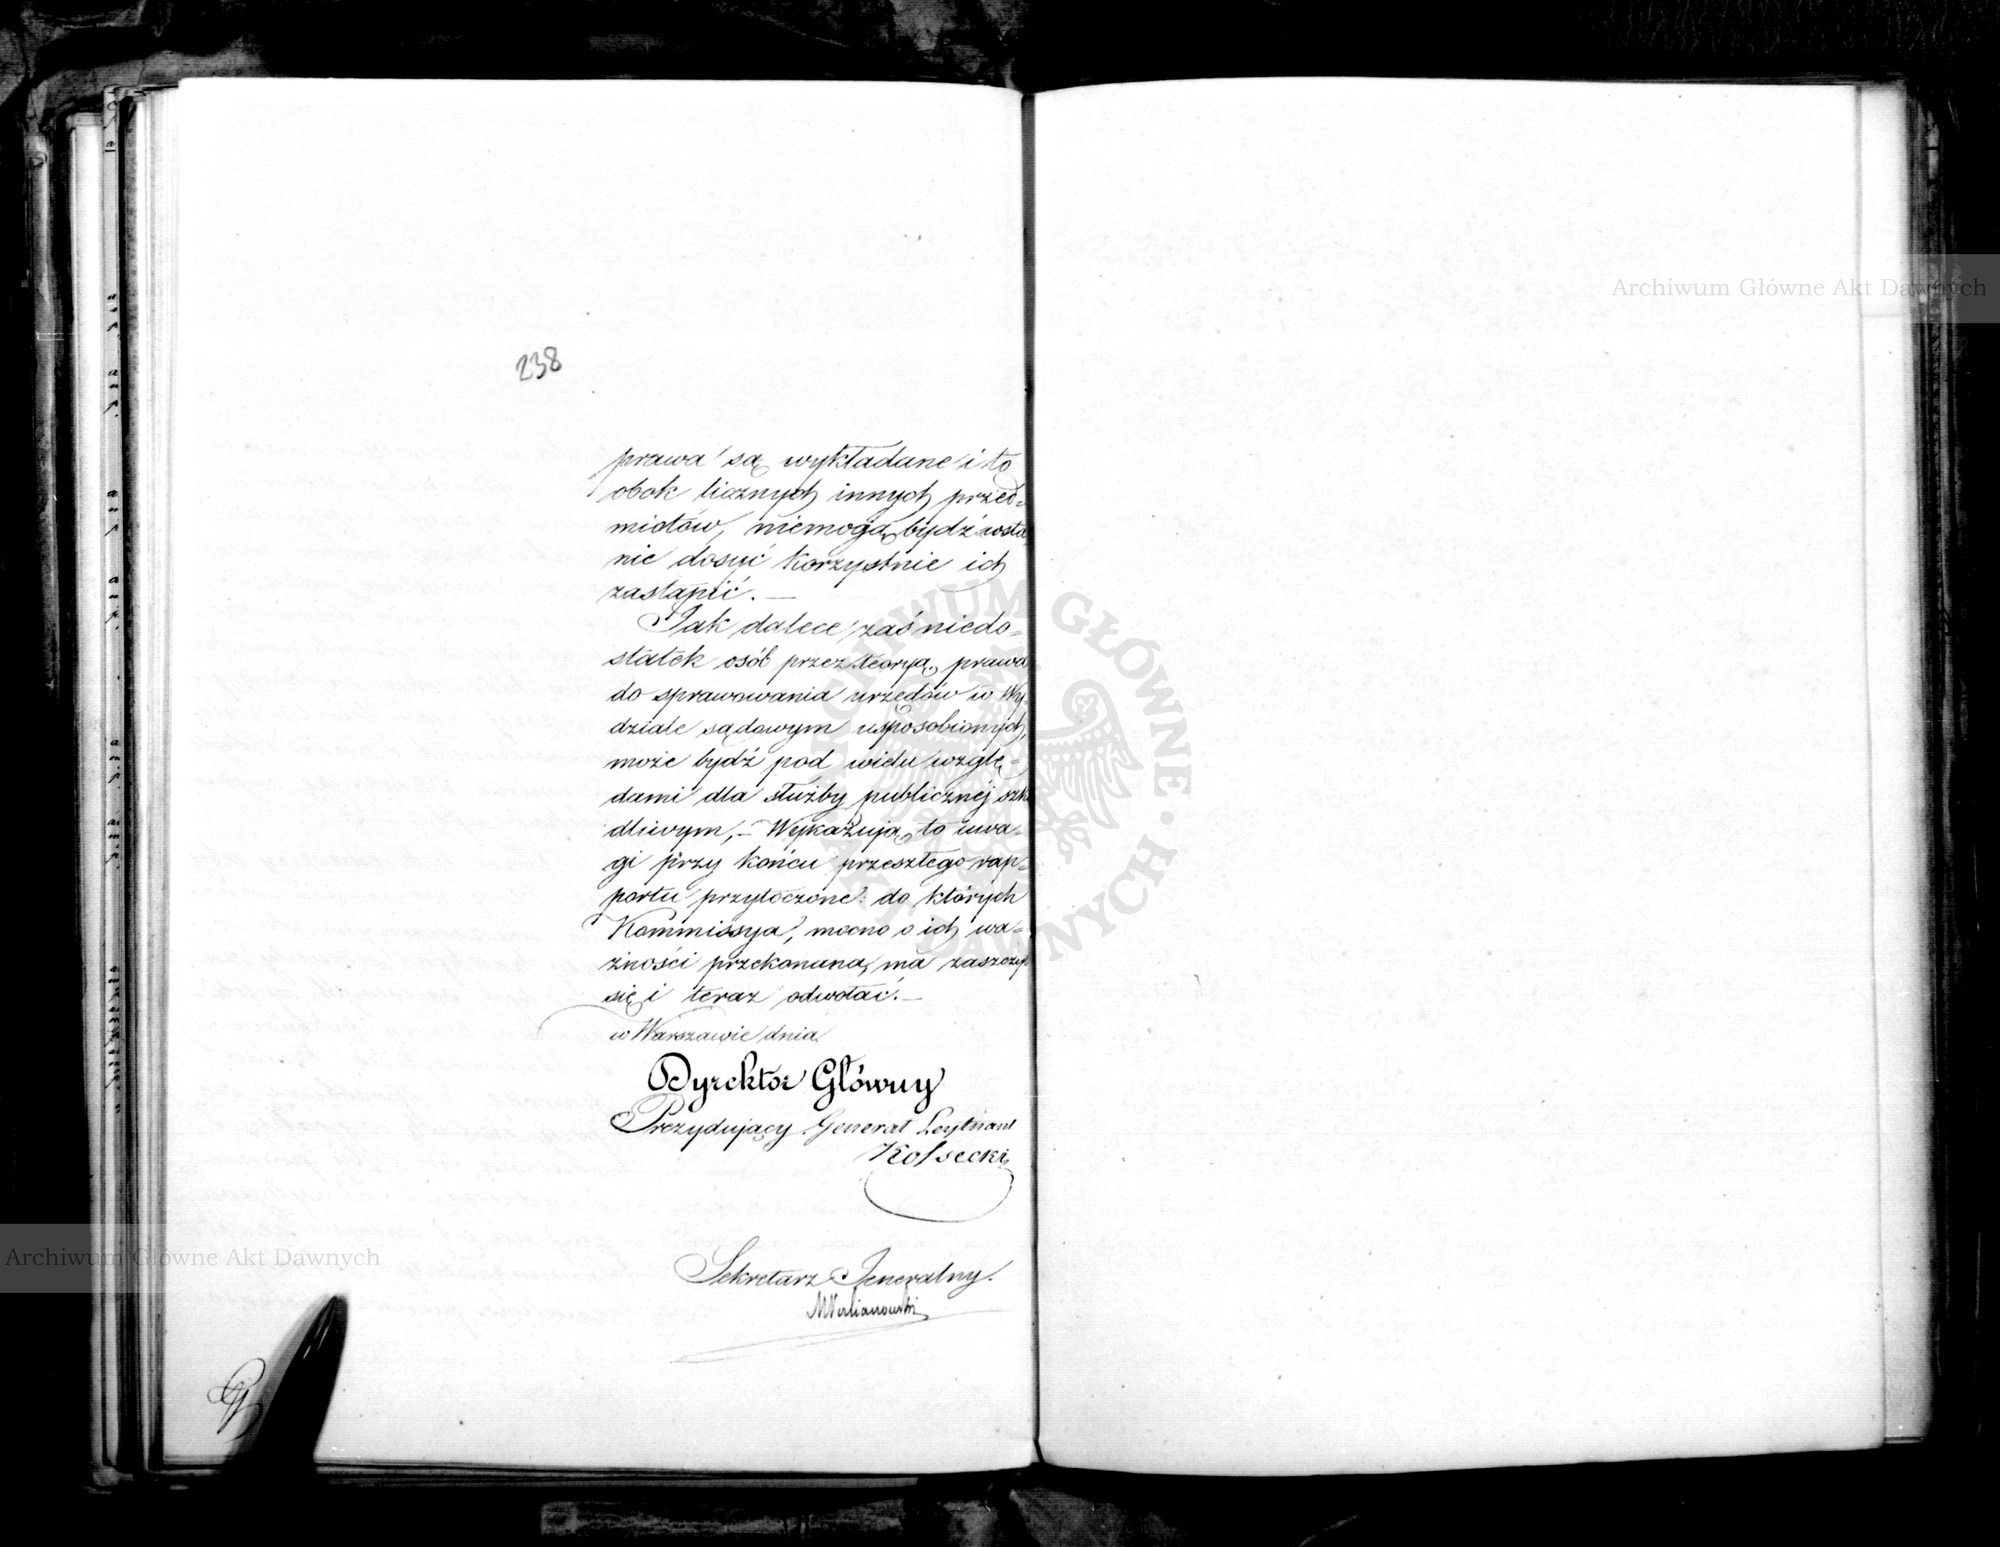 238
prawa są wykładane i to
obok licznych innych przed=
miotów, niemogą bydź wsta
nie dosyć korzystnie ich
zastąpić. —
Jak dalece zaś niedo=
statek osób przez teoryą prawa
do sprawowania urzędów w Wy=
dziale sądowym usposobionych,
może bydź pod wielu wzglę=
dami dla służby publicznéj szko
dliwym, — Wykazują to uwa=
gi przy końcu przeszłego rap=
portu przytoczone: do których
Kommissya, mocno o ich wa=
żności przekonana, ma zaszczyt
się i teraz odwołać. —
w Warszawie dnia
Dyrektor Główny
Prezydujący Generał Leytnant
Sekretarz Jeneralny.
Archiwum Główne Akt Dawnych
Archiwum Główne Akt Dawnych
ARCHIWUM GŁÓWNE AKT DAWNYCH